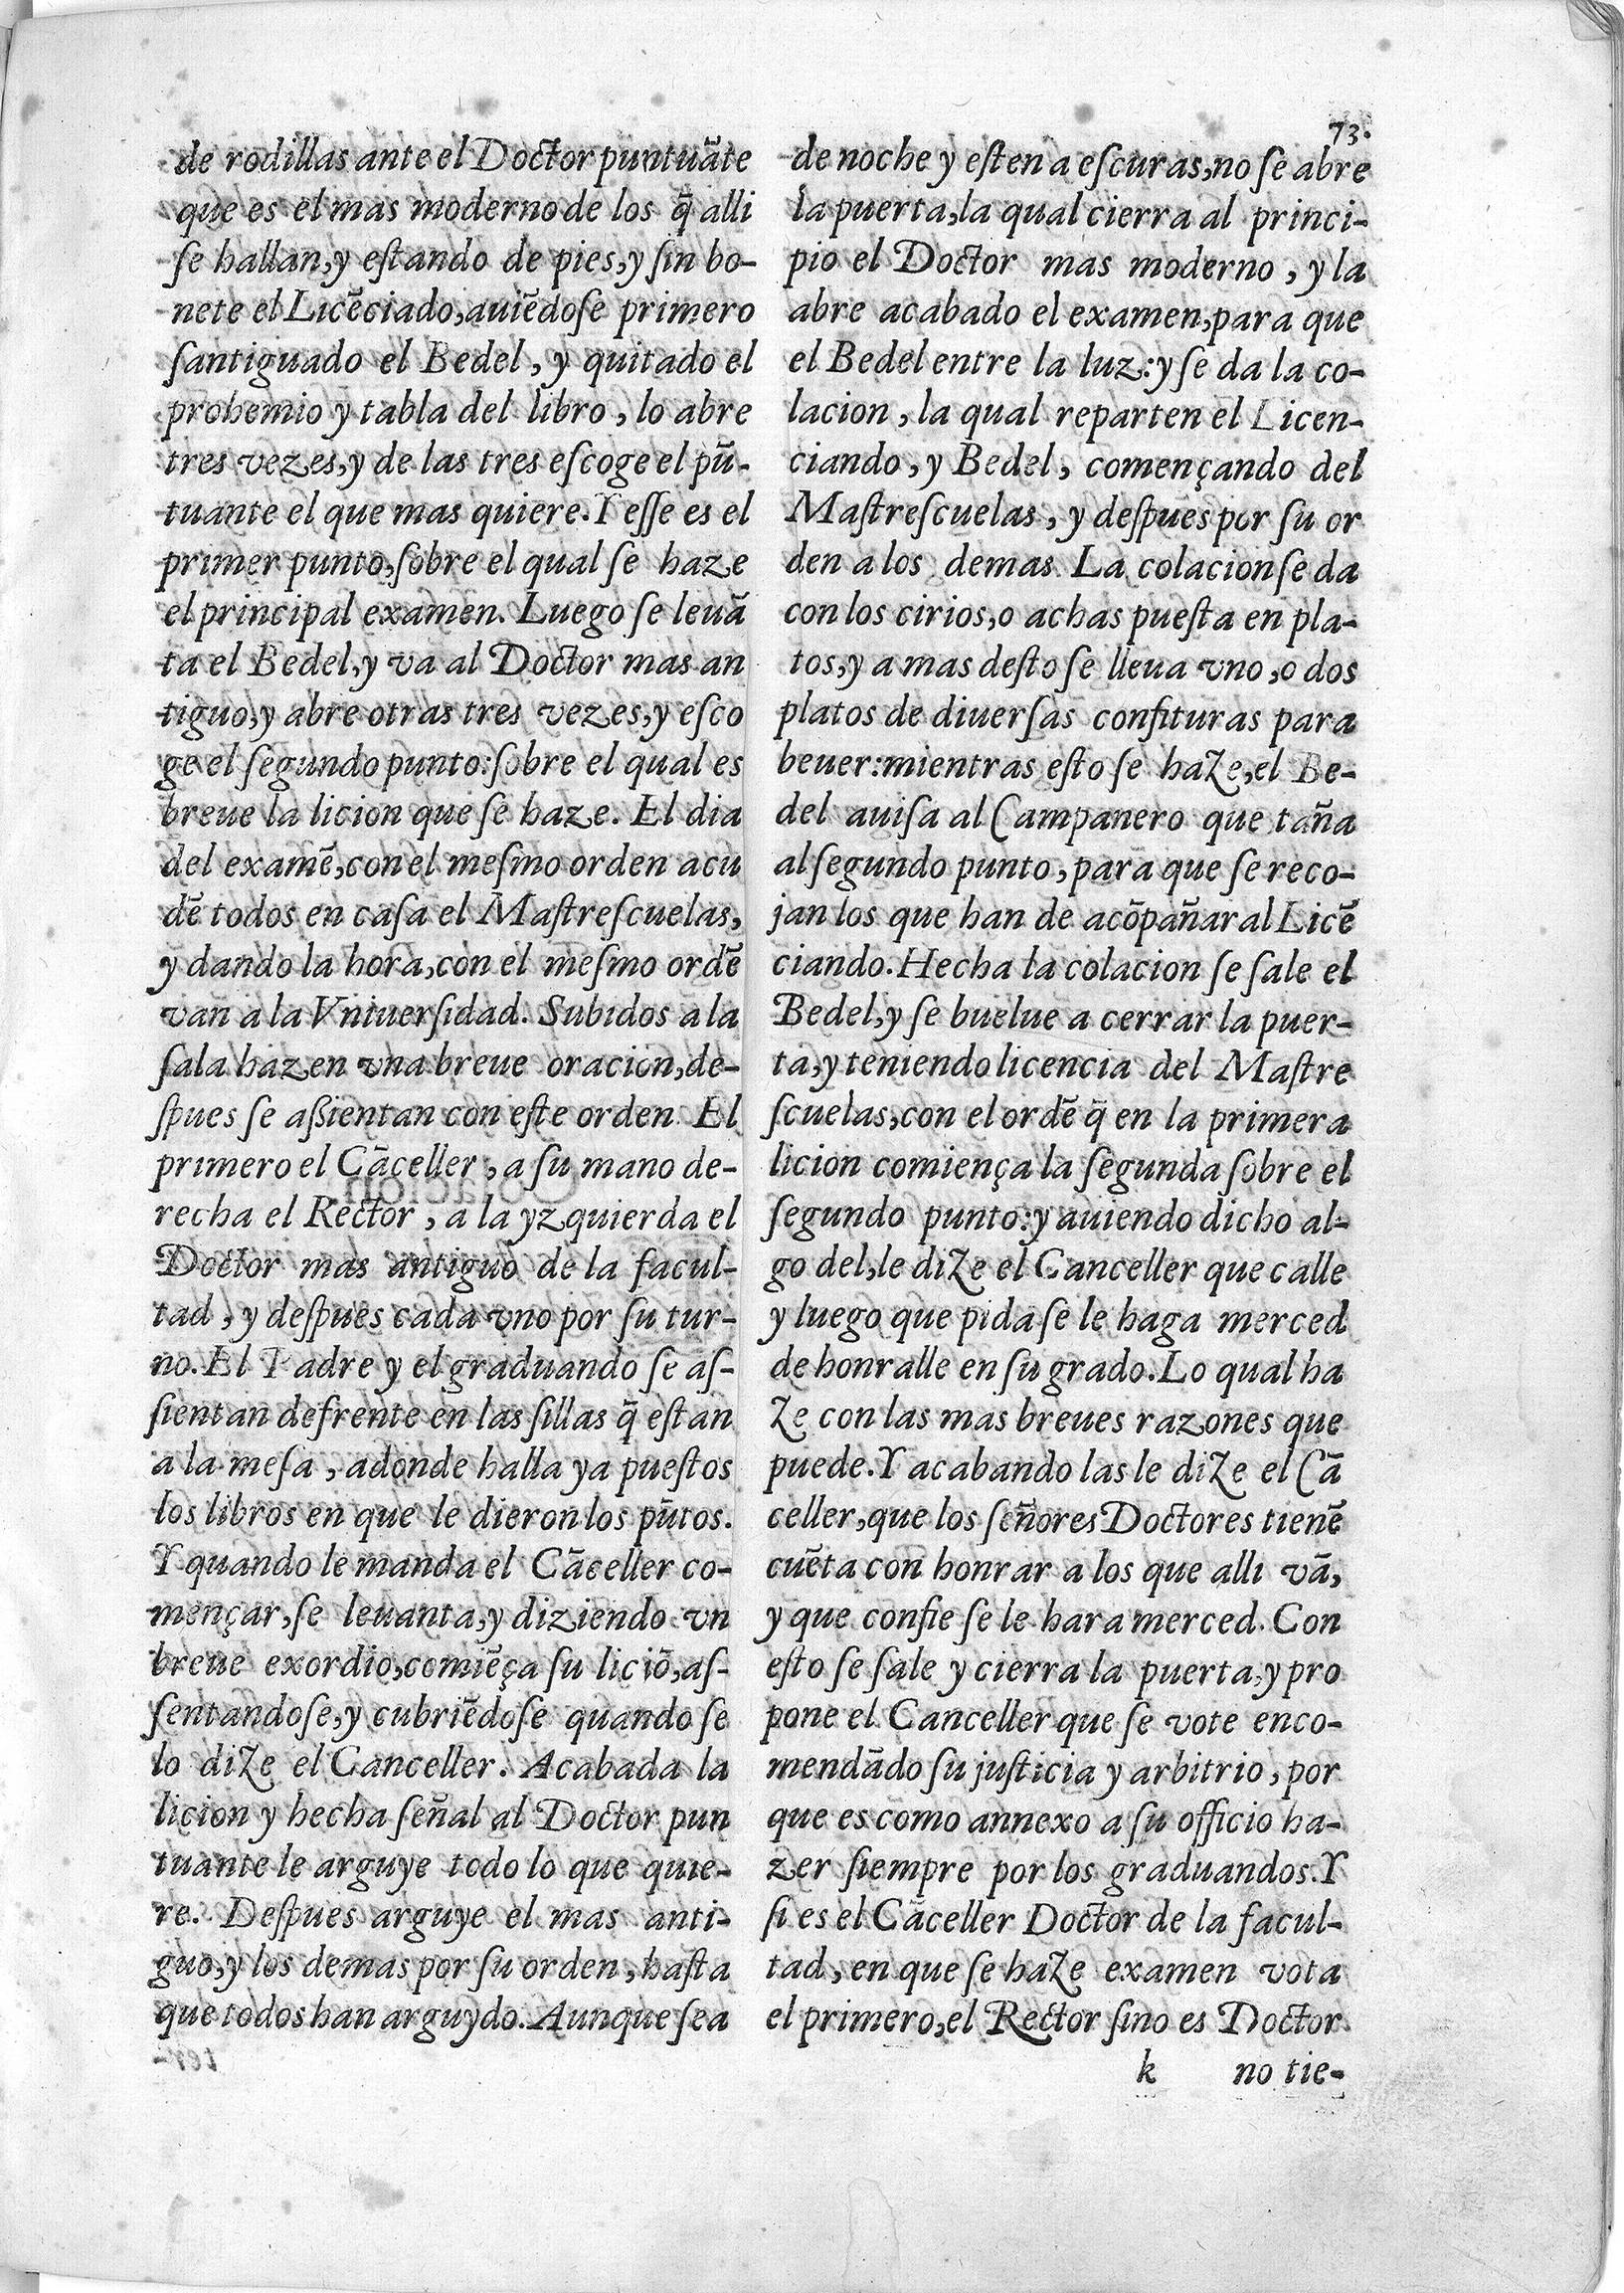 73.
de rodillas ante el Doctor puntuāte
que es el mas moderno de los q̄ alli
ſe hallan, y eſtando de pies, y ſin bo-
nete el Licēciado, auiēdoſe primero
ſantiguado el Bedel, y quitado el
prohemio y tabla del libro, lo abre
tres vezes, y de las tres eſcoge el pū-
tuante el que mas quiere. Y eſſe es el
primer punto, ſobre el qual ſe haze
el principal examen. Luego ſe leuā
ta el Bedel, y va al Doctor mas an
tiguo, y abre otras tres vezes, y eſco
ge el ſegundo punto: ſobre el qual es
breue la licion que ſe haze. El dia
del examē, con el meſmo orden acu
dē todos en caſa el Maſtreſcuelas,
y dando la hora, con el meſmo ordē
van a la Vniuerſidad. Subidos a la
ſala hazen vna breue oracion, de-
ſpues ſe aſsientan con eſte orden. El
primero el Cāceller, a ſu mano de-
recha el Rector, a la yzquierda el
Doctor mas antiguo de la facul-
tad, y deſpues cada vno por ſu tur-
no. El Padre y el graduando ſe aſ-
ſientan defrente en las ſillas q̄ eſtan
a la meſa, adonde halla ya pueſtos
los libros en que le dieron los pūtos.
Y quando le manda el Cāceller co-
mençar, ſe leuanta, y diziendo vn
breue exordio, comiēça ſu liciō, aſ-
ſentandoſe, y cubriēdoſe quando ſe
lo dize el Canceller. Acabada la
licion y hecha ſeñal al Doctor pun
tuante le arguye todo lo que quie-
re. Deſpues arguye el mas anti-
guo, y los demas por ſu orden, haſta
que todos han arguydo. Aunque ſea
de noche y eſten a eſcuras, no ſe abre
la puerta, la qual cierra al princi-
pio el Doctor mas moderno, y la
abre acabado el examen, para que
el Bedel entre la luz: y ſe da la co-
lacion, la qual reparten el Licen-
ciando, y Bedel, començando del
Maſtreſcuelas, y deſpues por ſu or
den a los demas. La colacion ſe da
con los cirios, o achas pueſta en pla-
tos, y a mas deſto ſe lleua vno, o dos
platos de diuerſas confituras para
beuer: mientras eſto ſe haze, el Be-
del auiſa al Campanero que taña
al ſegundo punto, para que ſe reco-
jan los que han de acōpañar al Licē
ciando. Hecha la colacion ſe ſale el
Bedel, y ſe buelue a cerrar la puer-
ta, y teniendo licencia del Maſtre
ſcuelas, con el ordē q̄ en la primera
licion comiença la ſegunda ſobre el
ſegundo punto: y auiendo dicho al-
go del, le dize el Canceller que calle
y luego que pida ſe le haga merced
de honralle en ſu grado. Lo qual ha
ze con las mas breues razones que
puede. Y acabando las le dize el Cā
celler, que los ſeñores Doctores tienē
cuēta con honrar a los que alli vā,
y que confie ſe le hara merced. Con
eſto ſe ſale y cierra la puerta, y pro
pone el Canceller que ſe vote enco-
mendādo ſu juſticia y arbitrio, por
que es como annexo a ſu officio ha-
zer ſiempre por los graduandos. Y
ſi es el Cāceller Doctor de la facul-
tad, en que ſe haze examen vota
el primero, el Rector ſino es Doctor
k no tie-